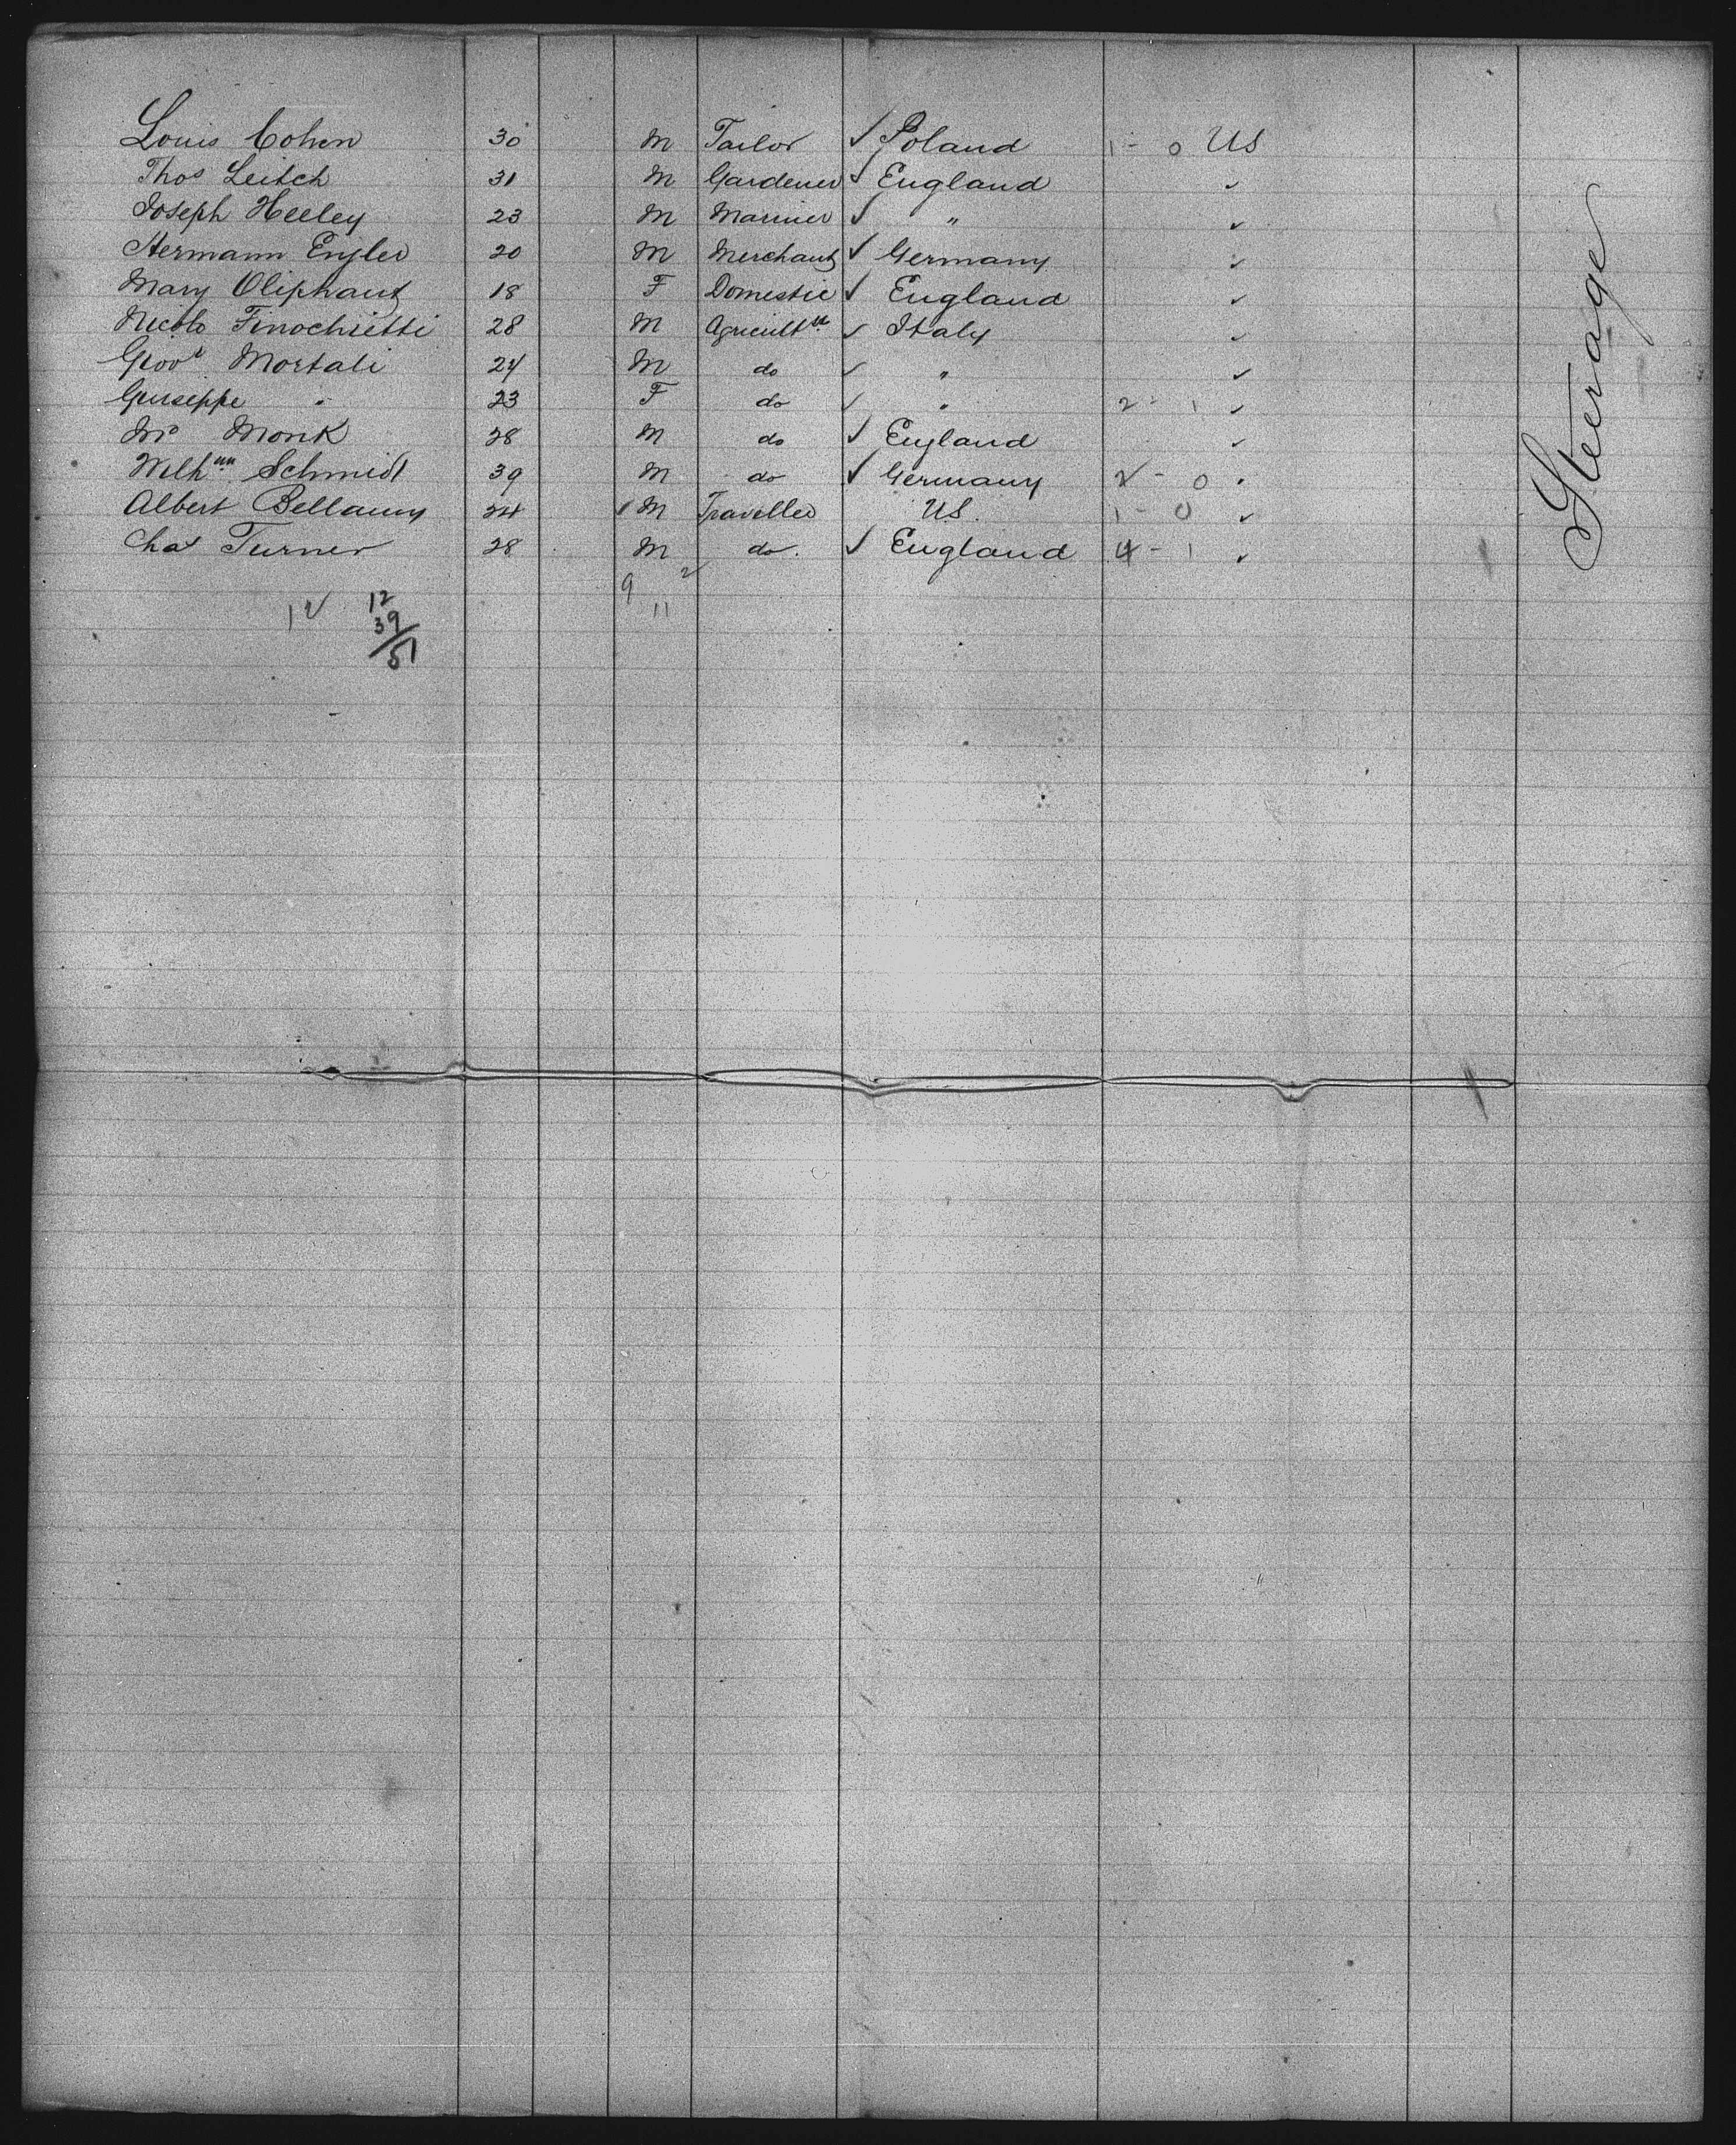 Louis Cohen 30 M Tailor ✓ Poland 1 - 0 US
Thos Leitch 31 M Gardener ✓ England ✓
Joseph Heeley 23 M Mariner ✓ " ✓
Hermann Engler 20 M Merchant ✓ Germany ✓
Mary Oliphant 18 F Domestic ✓ England ✓
Nicolo Finochietti 28 M Agricult ✓ Italy ✓
Giov Mortali 24 M do ✓ " ✓
Guiseppe " 23 F do ✓ " 2 - 1 ✓
Monk 28 M do ✓ England ✓
Wilhm Schmidt 39 M do ✓ Germany 2 - 0
Albert Bellamy 24 M Traveller US. 1 - 0 ✓
Chas Turner 28 M do. ✓ England 4 - 1 ✓
9 2
11
12 12
39
51
Steerage